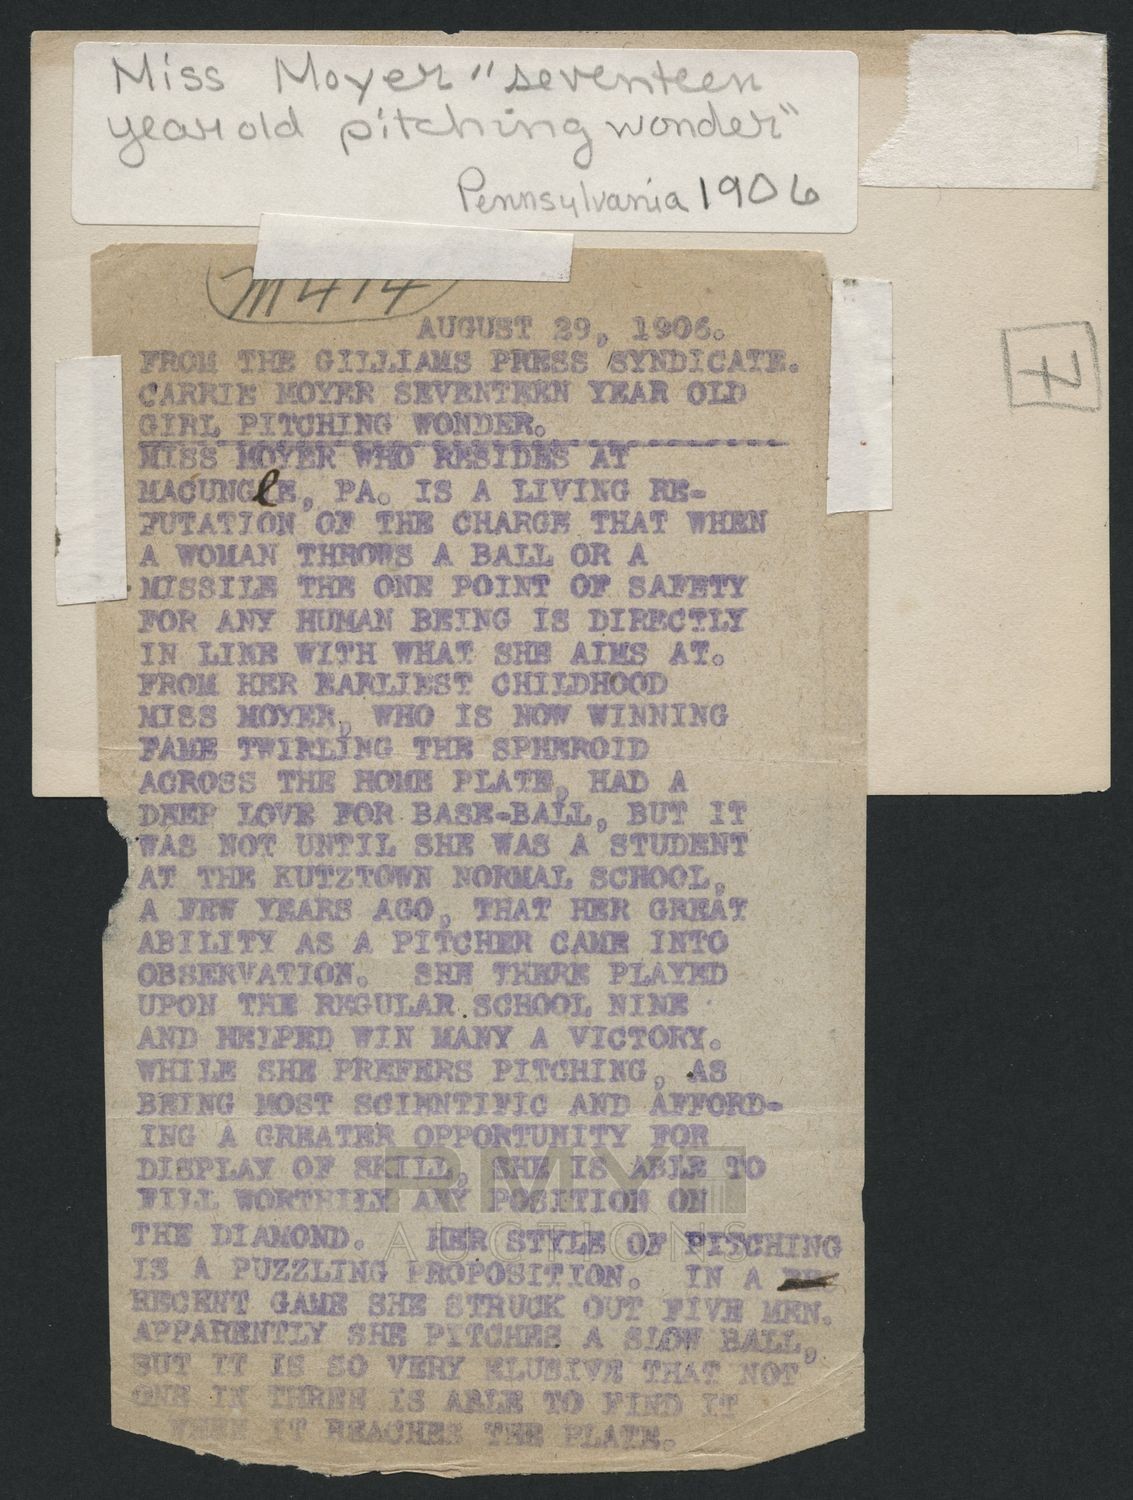 Miss Moyer "seventeen
year old pitching wonder"
Pennsylvania 1906
M414
7
AUGUST 29, 1906.
FROM THE GILLIAMS PRESS SYNDICATE.
CARRIE MOYER SEVENTEEN YEAR OLD
GIRL PITCHING WONDER.
MISS MOYER WHO RESIDES AT
MACUNGIE, PA. IS A LIVING RE-
FUTATION OF THE CHARGE THAT WHEN
A WOMAN THROWS A BALL OR A
MISSILE THE ONE POINT OF SAFETY
FOR ANY HUMAN BEING IS DIRECTLY
IN LINE WITH WHAT SHE AIMS AT.
FROM HER EARLIEST CHILDHOOD
MISS MOYER, WHO IS NOW WINNING
FAME TWIRLING THE SPHEROID
ACROSS THE HOME PLATE, HAD A
DEEP LOVE FOR BASE-BALL, BUT IT
WAS NOT UNTIL SHE WAS A STUDENT
AT THE KUTZTOWN NORMAL SCHOOL,
A FEW YEARS AGO, THAT HER GREAT
ABILITY AS A PITCHER CAME INTO
OBSERVATION. SHE THERE PLAYED
UPON THE REGULAR SCHOOL NINE
AND HELPED WIN MANY A VICTORY.
WHILE SHE PREFERS PITCHING, AS
BEING MOST SCIENTIFIC AND AFFORD-
ING A GREATER OPPORTUNITY FOR
DISPLAY OF SKILL, SHE IS ABLE TO
FILL WORTHILY ANY POSITION ON
THE DIAMOND. HER STYLE OF PITCHING
IS A PUZZLING PROPOSITION. IN A
RECENT GAME SHE STRUCK OUT FIVE MEN.
APPARENTLY SHE PITCHES A SLOW BALL,
BUT IT IS SO VERY ELUSIVE THAT NOT
ONE IN THREE IS ABLE TO FIND IT
WHEN IT REACHES THE PLATE.
RMY AUCTIONS